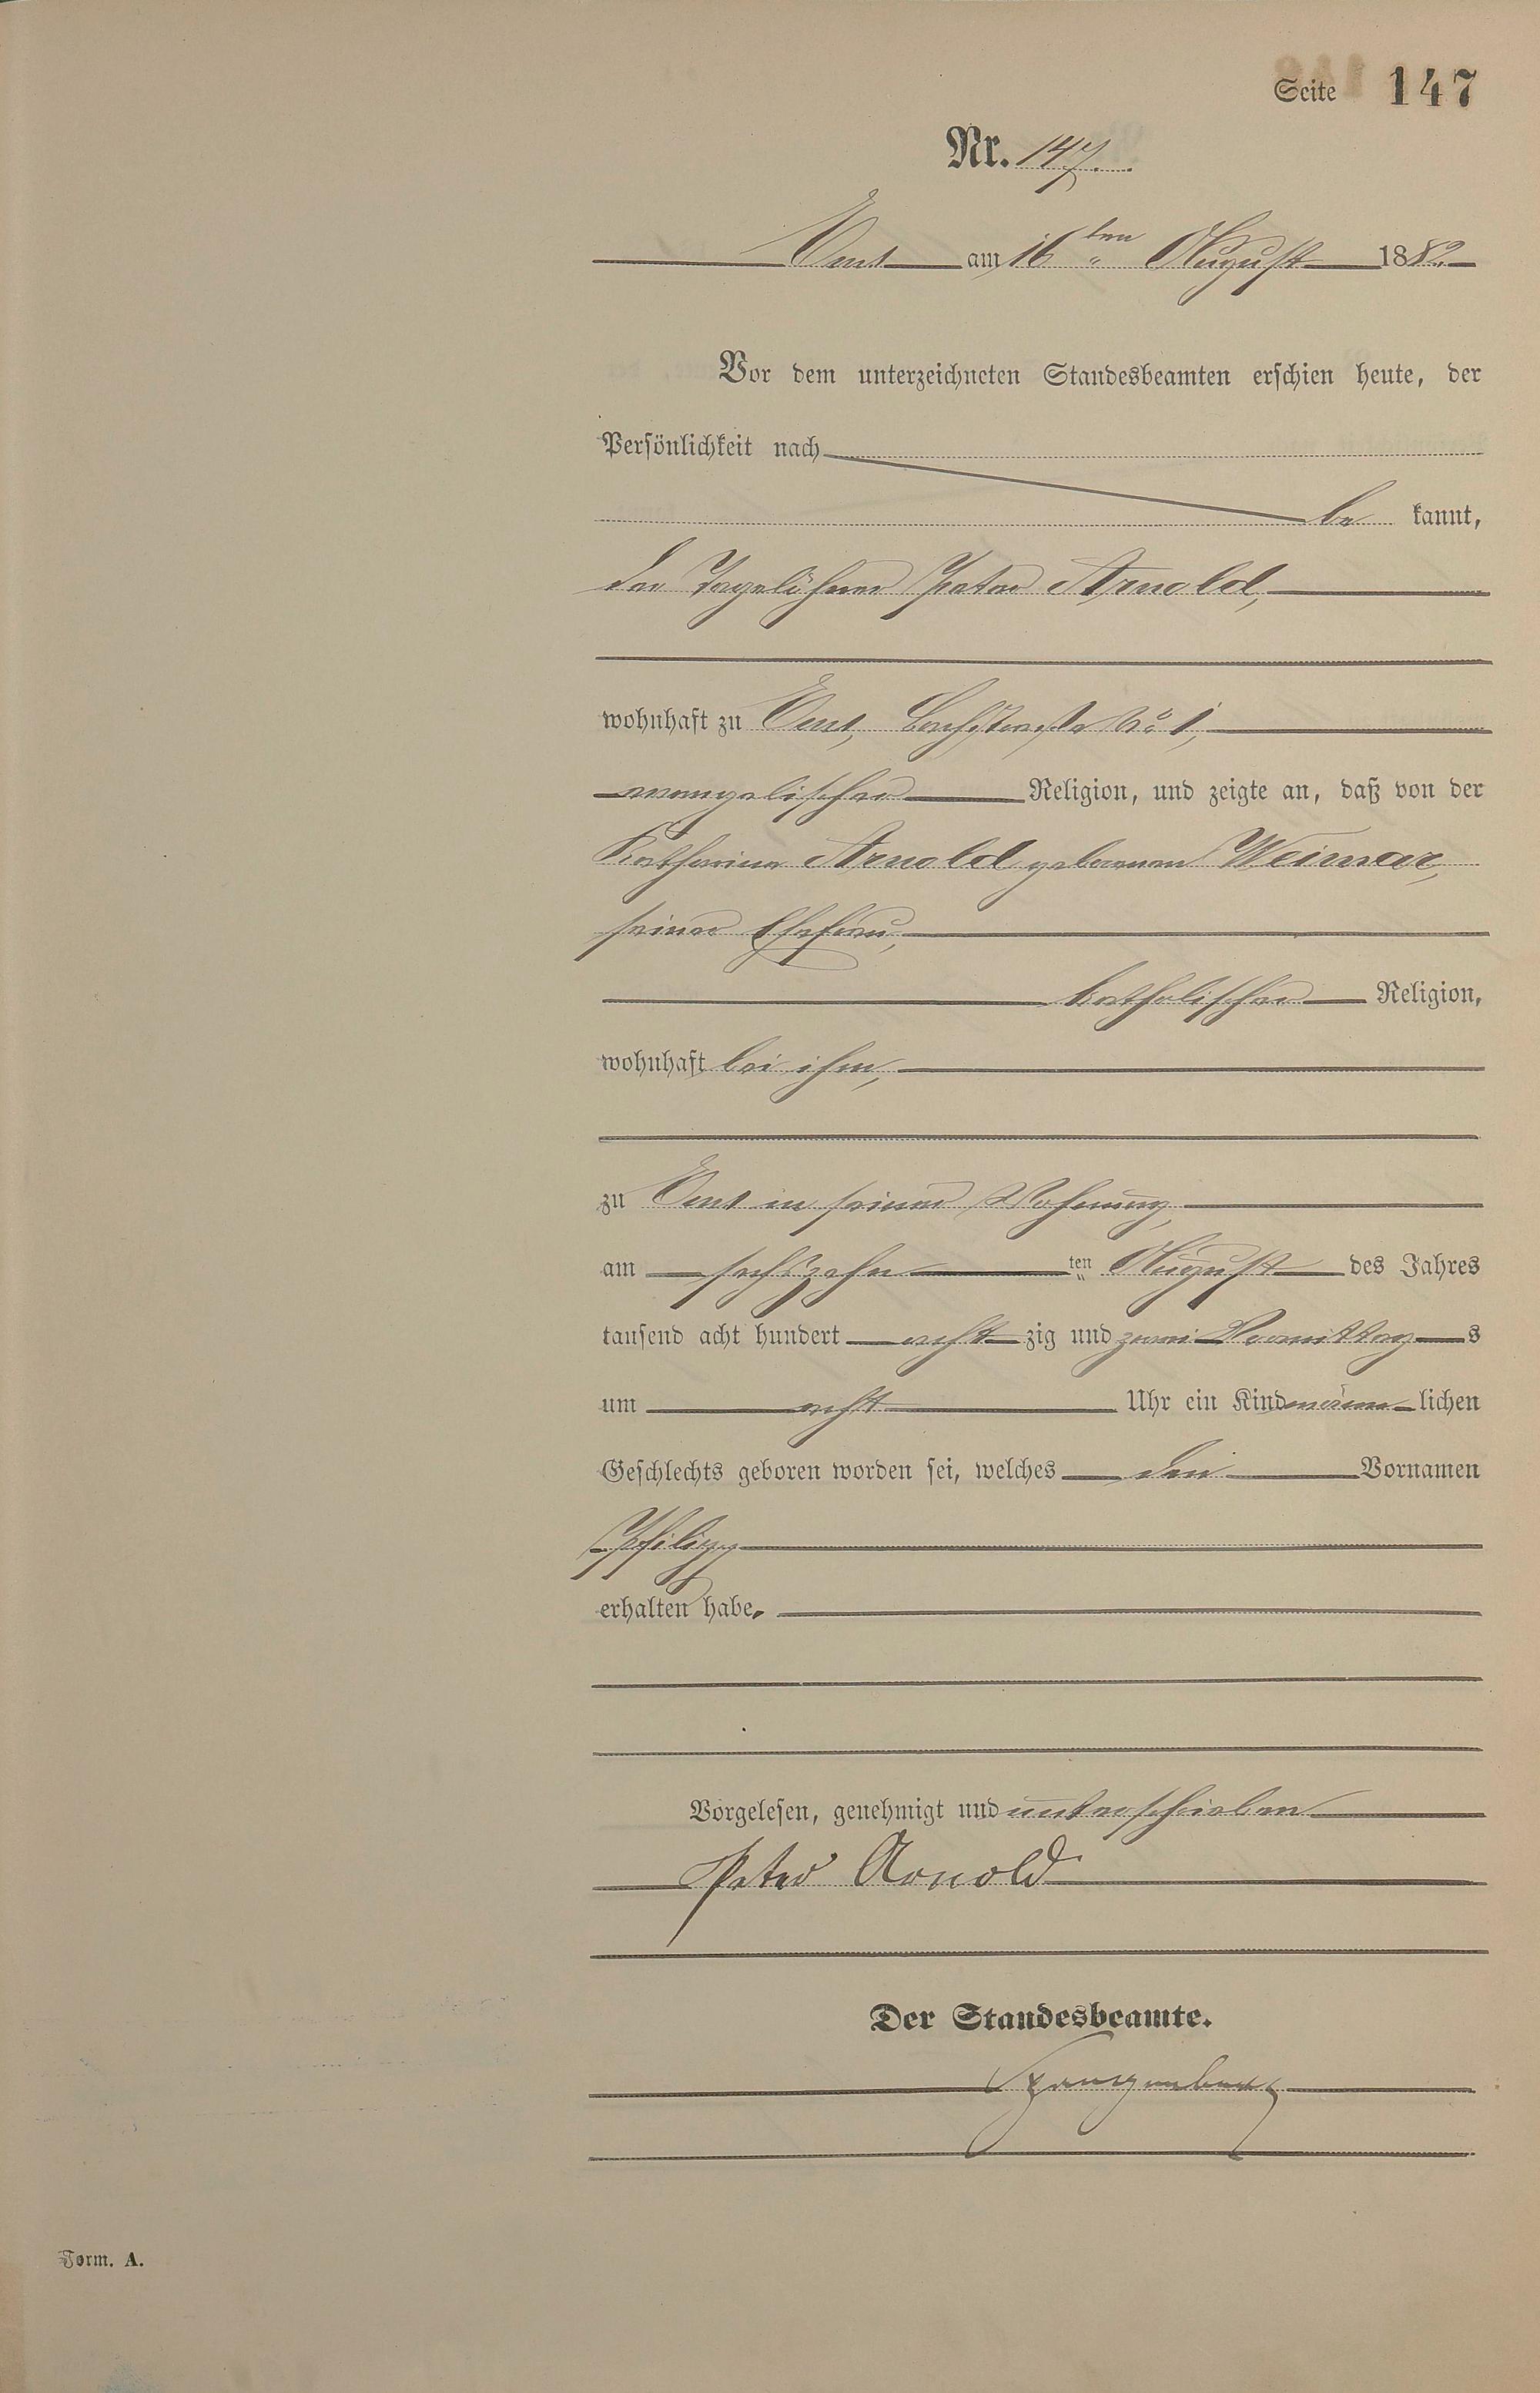 Seite 147
Nr. 147.
Ems am 16ten August 1882.
Vor dem unterzeichneten Standesbeamten erschien heute, der
Persönlichkeit nach
be kannt,
der Tagelöhner Peter Arnold,
wohnhaft zu Ems, No 1,
evangelischer Religion, und zeigte an, daß von der
Katharina Arnold geborenen Weimar,
seiner Ehefrau,
katholischer Religion,
wohnhaft bei ihm,
zu Ems in seiner Wohnung,
am sechszehn ten August des Jahres
tausend acht hundert acht zig und zwei Vormittag s
um acht Uhr ein Kind männ lichen
Geschlechts geboren worden sei, welches den Vornamen
Philipp
erhalten habe.
Vorgelesen, genehmigt und unterschrieben
Peter Arnold
Der Standesbeamte.
Form. A.